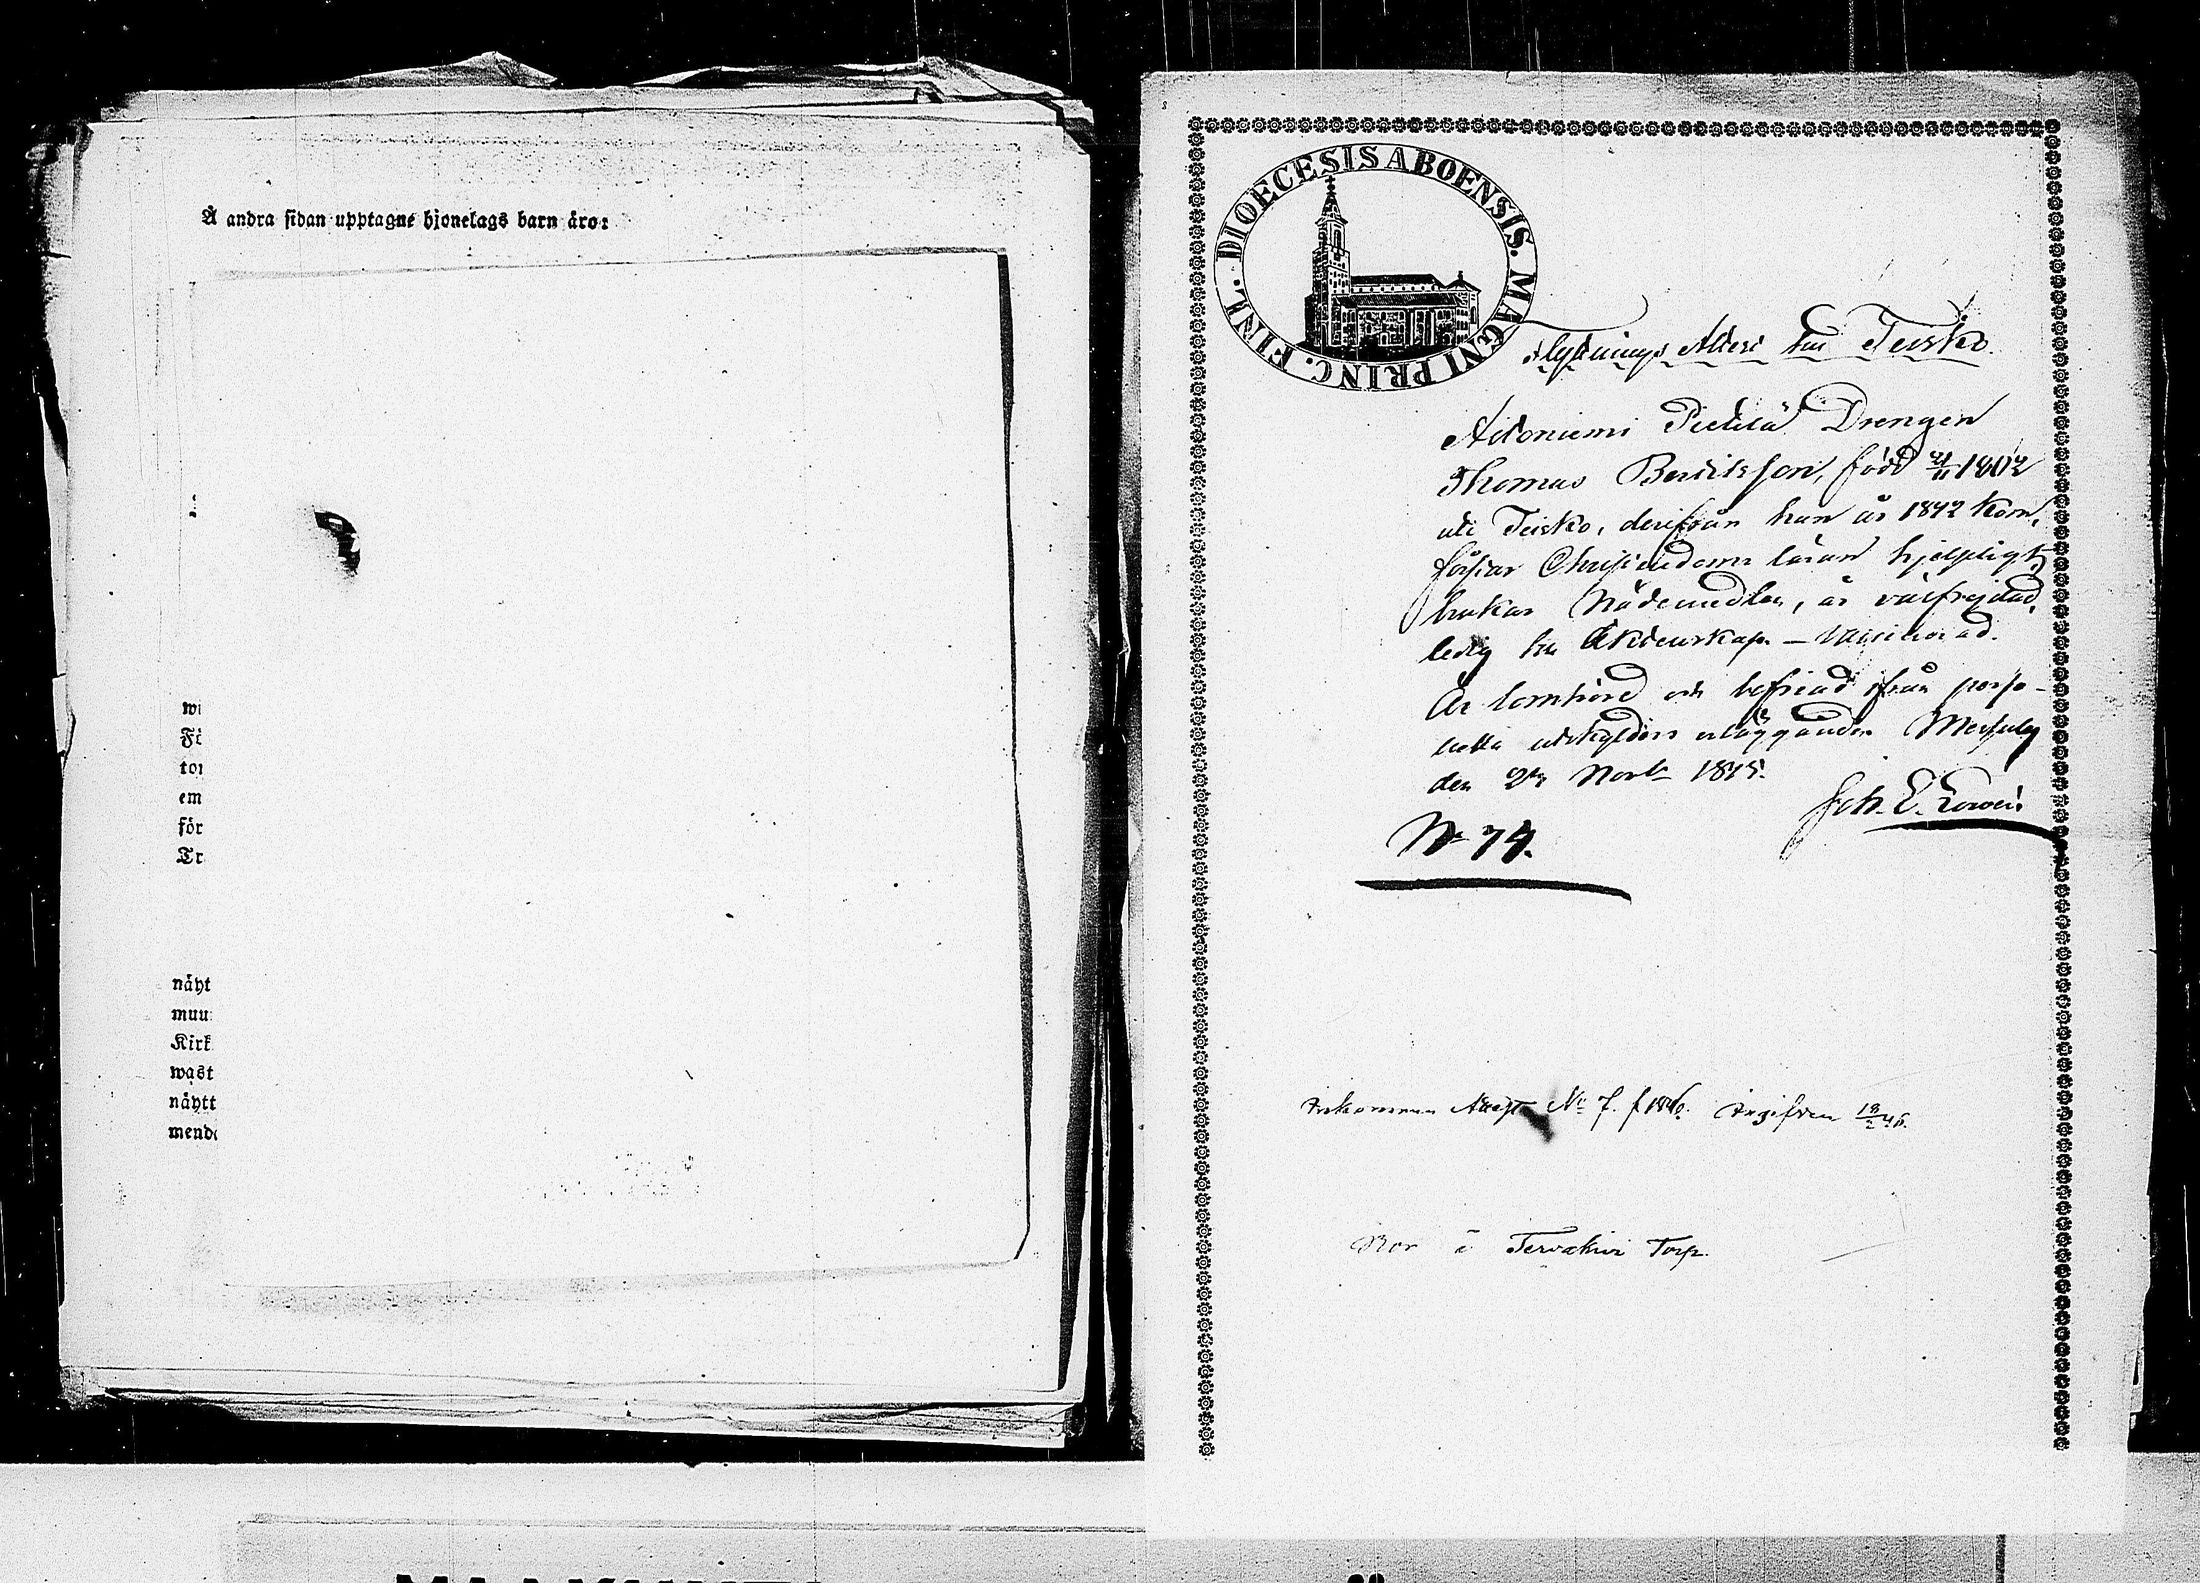 Å andra sidan upptagne hjonelags barn äro:
wi
Fi
tor
em
för
Tr
näht
muu
Kirk
wast
nähtt
mend
DIOECESIS ABOENSIS. MAGNI PRINC. FINL.
Flyttnings Attest till Teisko
Aitoniemi Pietilä Drengen
Thomas Bertilsson, född 21/11 1802
uti Teisko, derifrån han år 1842 kom,
förstår Christendoms läran hjelpligt,
brukar Nådemedlen, är välfrejdad,
ledig till Äktenskap — Vaccinerad.
Är lomhörd och befriad ifrån perso-
nella utskylders erläggande. Messuby
den Novbr 1845.
Joh. E.
No 74.
Inkommen Attest No 7. f 1846. Ingifven 18/2 46.
Bor å Torp.